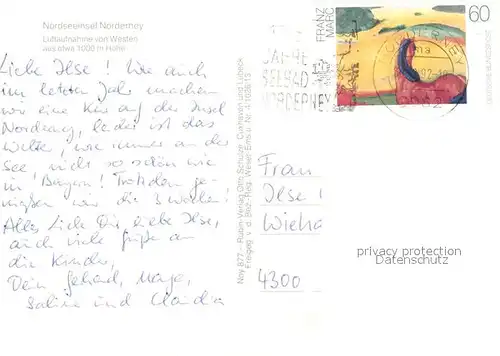 Nordseeinsel Norderney
Luftaufnahme von Westen
aus etwa 1000 m Höhe
Liebe Ilse! Wie auch
im letzten Jahr machen
wir eine Kur auf der Insel
Norderney, leider ist das
Wetter, wie immer an der
See nicht so schön wie
in Bayern! Trotzdem ge-
nießen wir die 3 Wochen!
Alles Liebe Dir, liebe Ilse,
auch viele Grüße an
die Kinder,
Dein Gerhard,
Sabine und Claudia
Ney 877 - Rubin-Verlag Otto Schulze, Cuxhaven und Lübeck
Freigeg. v. d. Bez.-Reg. Weser Ems u. Nr.
FRANZ
MARC
60
DEUTSCHE BUNDESPOST
NORDERNEY
Frau
Ilse
4300
privacy protection
Datenschutz